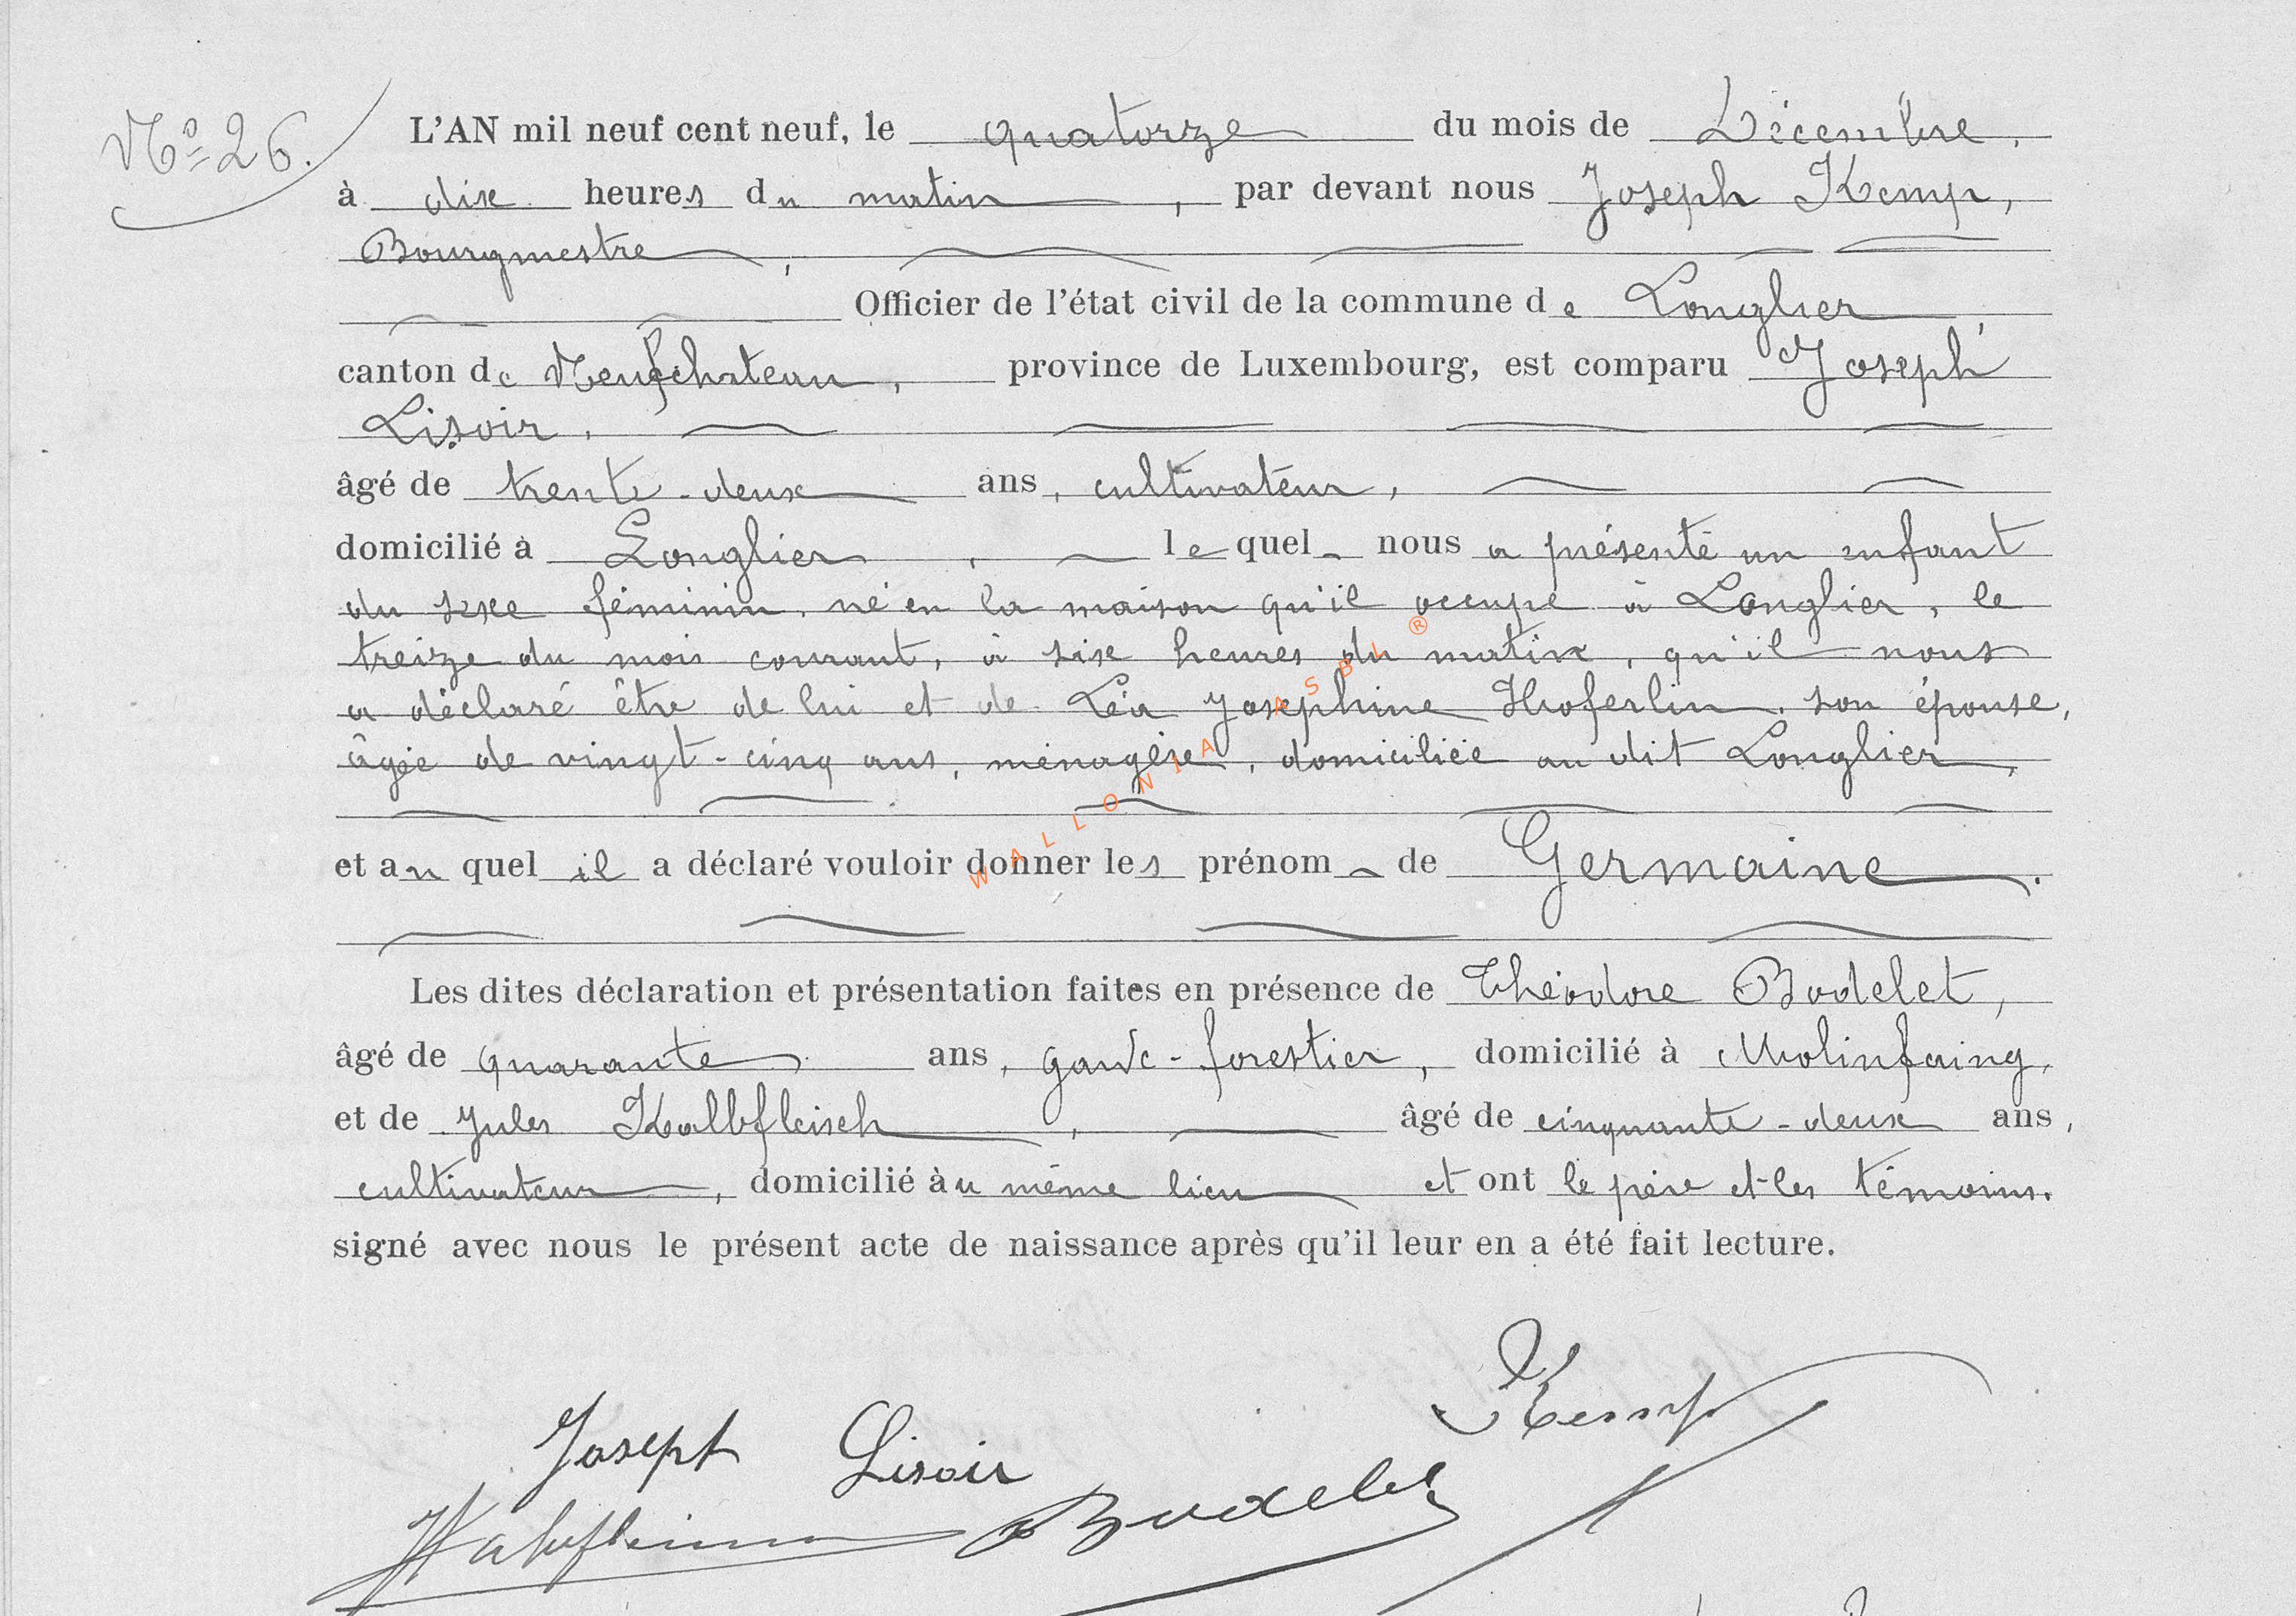 Nº 26.
L'AN mil neuf cent neuf, le quatorze du mois de Décembre,
à dix heures du matin, par devant nous Joseph Kemp,
Bourgmestre,
Officier de l'état civil de la commune de Longlier,
canton de Neufchateau, province de Luxembourg, est comparu Joseph
Lisoir,
âgé de trente-deux ans, cultivateur,
domicilié à Longlier, lequel nous a présenté un enfant
du sexe féminin, né en la maison qu'il occupe à Longlier, le
treize du mois courant, à six heures du matin, qu'il nous
a déclaré être de lui et de Léa Josephine Hoferlin, son épouse,
âgée de vingt-cinq ans, ménagère, domiciliée au dit Longlier,
et au quel il a déclaré vouloir donner les prénom de Germaine.
Les dites déclaration et présentation faites en présence de Théodore Bodelet,
âgé de quarante ans, garde-forestier, domicilié à Molinfaing,
et de Jules Kalbfleisch, âgé de cinquante-deux ans,
cultivateur, domicilié àu même lieu et ont le père et les témoins.
signé avec nous le présent acte de naissance après qu'il leur en a été fait lecture.
Kemp
Joseph Lisoir
Bodelet
WALLONIA ASBL ®